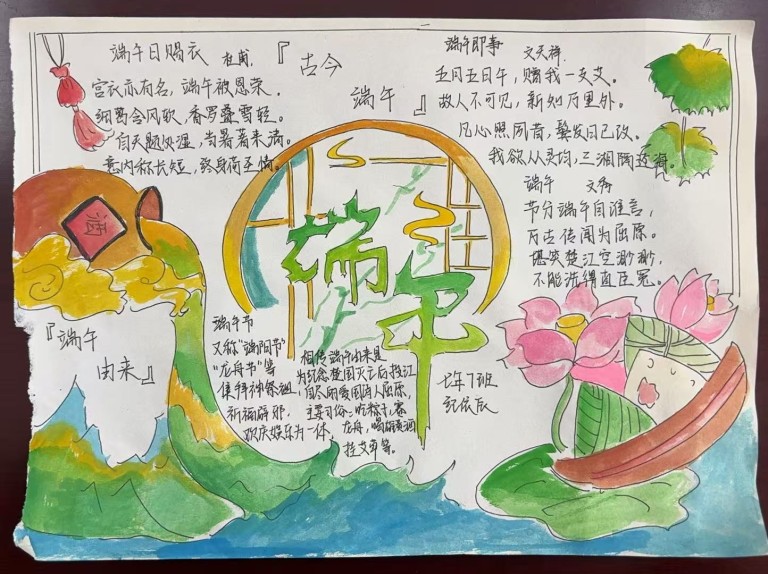 端午日赐衣 杜甫
宫衣亦有名，端午被恩荣。
细葛含风软，香罗叠雪轻。
自天题处湿，当暑著来清。
意内称长短，终身荷圣情。
『古今
端午』
端午即事 文天祥
五月五日午，赠我一支艾。
故人不可见，新知万里外。
凡心照夙昔，鬓发日已改。
我欲从灵均，三湘隔辽海。
端午 文秀
节分端午自谁言，
万古传闻为屈原。
堪笑楚江空渺渺，
不能洗得直臣冤。
酒
端午
『端午
由来』
端午节
又称"端阳节"
"龙舟节"等
集拜神祭祖，
祈福辟邪，
欢庆娱乐为一体，
相传端午由来是
为纪念楚国灭亡后投江
自尽的爱国诗人屈原，
主要习俗：吃粽子，赛
龙舟，喝雄黄酒
挂艾草等。
七年7班